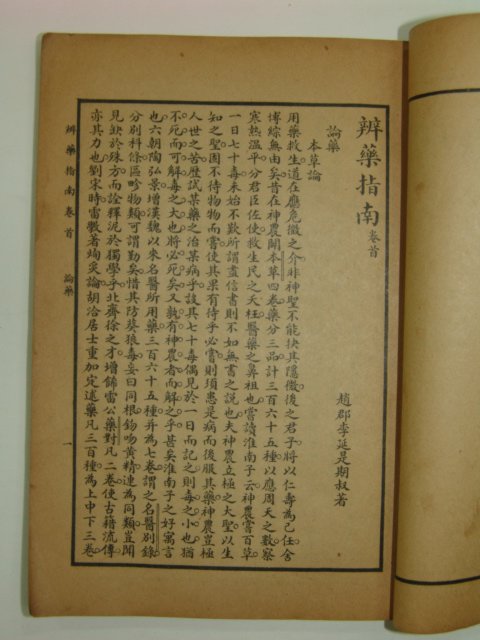 辨藥指南卷首
趙郡李延是期叔著
論藥
本草論
用藥救生道在應危微之介非神聖不能抉其隱微後之君子將以仁壽為己任舍
博綜無由矣昔在神農闢本草四卷藥分三品計三百六十五種以應周天之數察
寒熱溫平分君臣佐使救生民之夭枉醫藥之鼻祖也嘗讀淮南子云神農嘗百草
一日七十毒未始不歎所謂盡信書則不如無書之說也夫神農立極之大聖以生
知之聖固不待物物而嘗使其果有待乎必嘗則須患是病而後服其藥神農豈極
人世之苦歷試某藥之治某病乎設其七十毒偶見於一日而記之則毒之小也猶
不死而可解毒之大也將必死矣又孰有神農者而解之乎甚矣淮南子之好寓言
也六朝陶弘景增漢魏以來名醫所用藥三百六十五種并為七卷謂之名醫別錄
分別科條區畛物類可謂勤矣惜其防葵狼毒妄曰同根鉤吻黃精連為同類豈聞
見缺於殊方而詮釋泥於獨學乎北齊徐之才增飾雷公藥對凡二卷使古籍流傳
亦其力也劉宋時雷斆著炮炙論胡洽居士重加定述藥凡三百種為上中下三卷
辨藥指南卷首
論藥
一